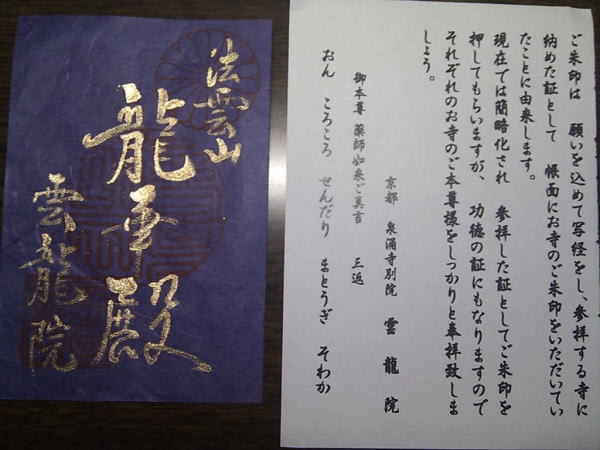 法雲山
龍華殿
雲龍院
ご朱印は 願いを込めて写経をし、参拝する寺に
納めた証として 帳面にお寺のご朱印をいただいてい
たことに由来します。
現在では簡略化され 参拝した証としてご朱印を
押してもらいますが、 功徳の証にもなりますので
それぞれのお寺のご本尊様をしっかりと奉拝致しま
しょう。
京都 泉涌寺別院 雲龍院
御本尊 薬師如来ご真言 三返
おん ころころ せんだり まとうぎ そわか